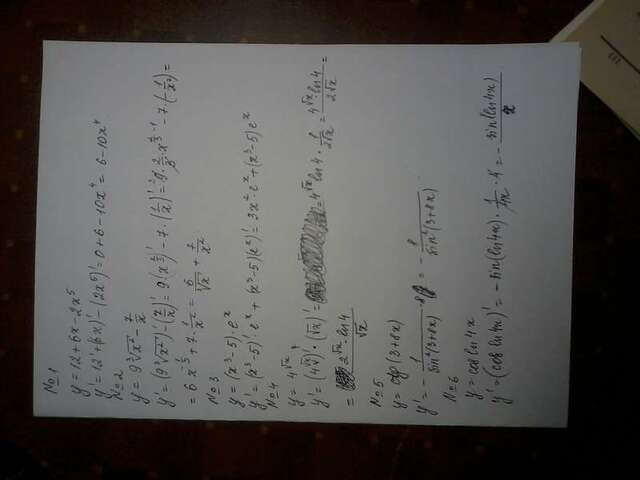 №1
y = 12 + 6x - 2x⁵
y' = 12' + (6x)' - (2x⁵)' = 0 + 6 - 10x⁴ = 6 - 10x⁴
№2
y = 9∛x² - 7/x
y' = (9∛x²)' - (7/x)' = 9(x^(2/3))' - 7·(1/x)' = 9·2/3·x^(2/3 - 1) - 7·(-1/x²) =
= 6x^(-1/3) + 7·1/x² = 6/∛x + 7/x²
№3
y = (x³ - 5)·eˣ
y' = (x³ - 5)'·eˣ + (x³ - 5)(eˣ)' = 3x²·eˣ + (x³ - 5)eˣ
№4
y = 4^√x
y' = (4^√x)'·(√x)' = 4^√x ln4 · 1/(2√x) = (4^√x · ln4)/(2√x) =
= (2^√x · ln4)/√x
№5
y = ctg(3 + 8x)
y' = - 1/(sin²(3 + 8x)) · 8 = - 8/(sin²(3 + 8x))
№6
y = cos ln4x
y' = (cos ln4x)' = - sin(ln4x) · 1/(4x) · 4 = - sin(ln4x)/x